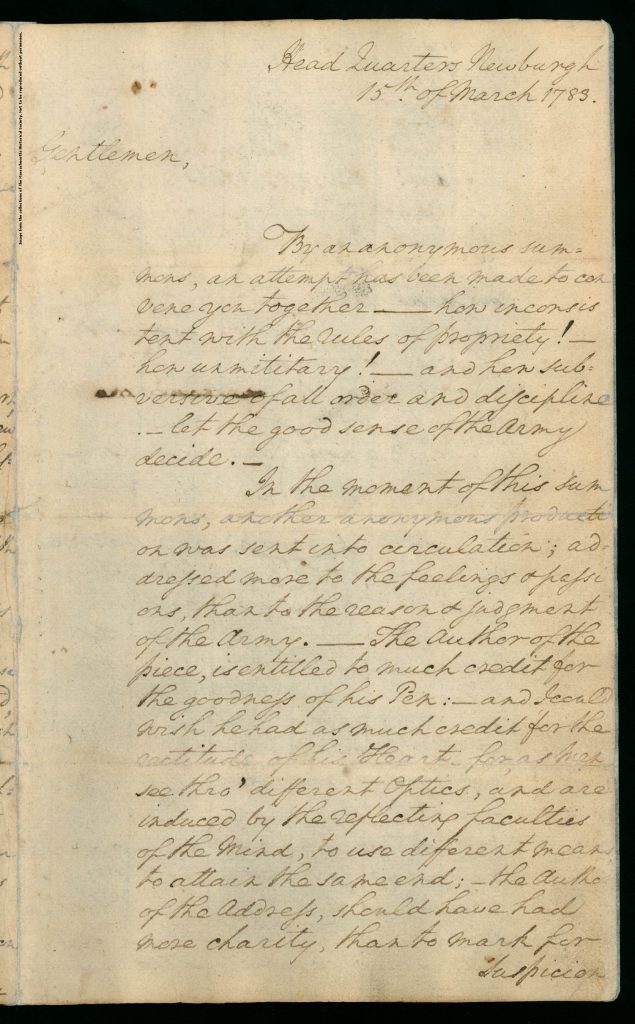 Image from the collections of the Massachusetts Historical Society. Not to be reproduced without permission.
Head Quarters Newburgh
15th. of March 1783.
Gentlemen,
By an anonymous sum=
mons, an attempt has been made to con
vene you together — how inconsis
tent with the rules of propriety! —
how unmilitary! — and how sub=
versive of all order and discipline
. — let the good sense of the Army
decide. —
In the moment of this sum
mons, another anonymous producti
on was sent into circulation; ad=
dressed more to the feelings & passi
ons, than to the reason & judgment
of the Army. — The Author of the
piece, is entitled to much credit for
the goodness of his Pen: — and I could
wish he had as much credit for the
rectitude of his Heart – for, as Men
see thro' different Optics, and are
induced by the reflecting faculties
of the Mind, to use different means
to attain the same end; – the Autho
of the Address, should have had
more charity, than to mark for
Suspicion